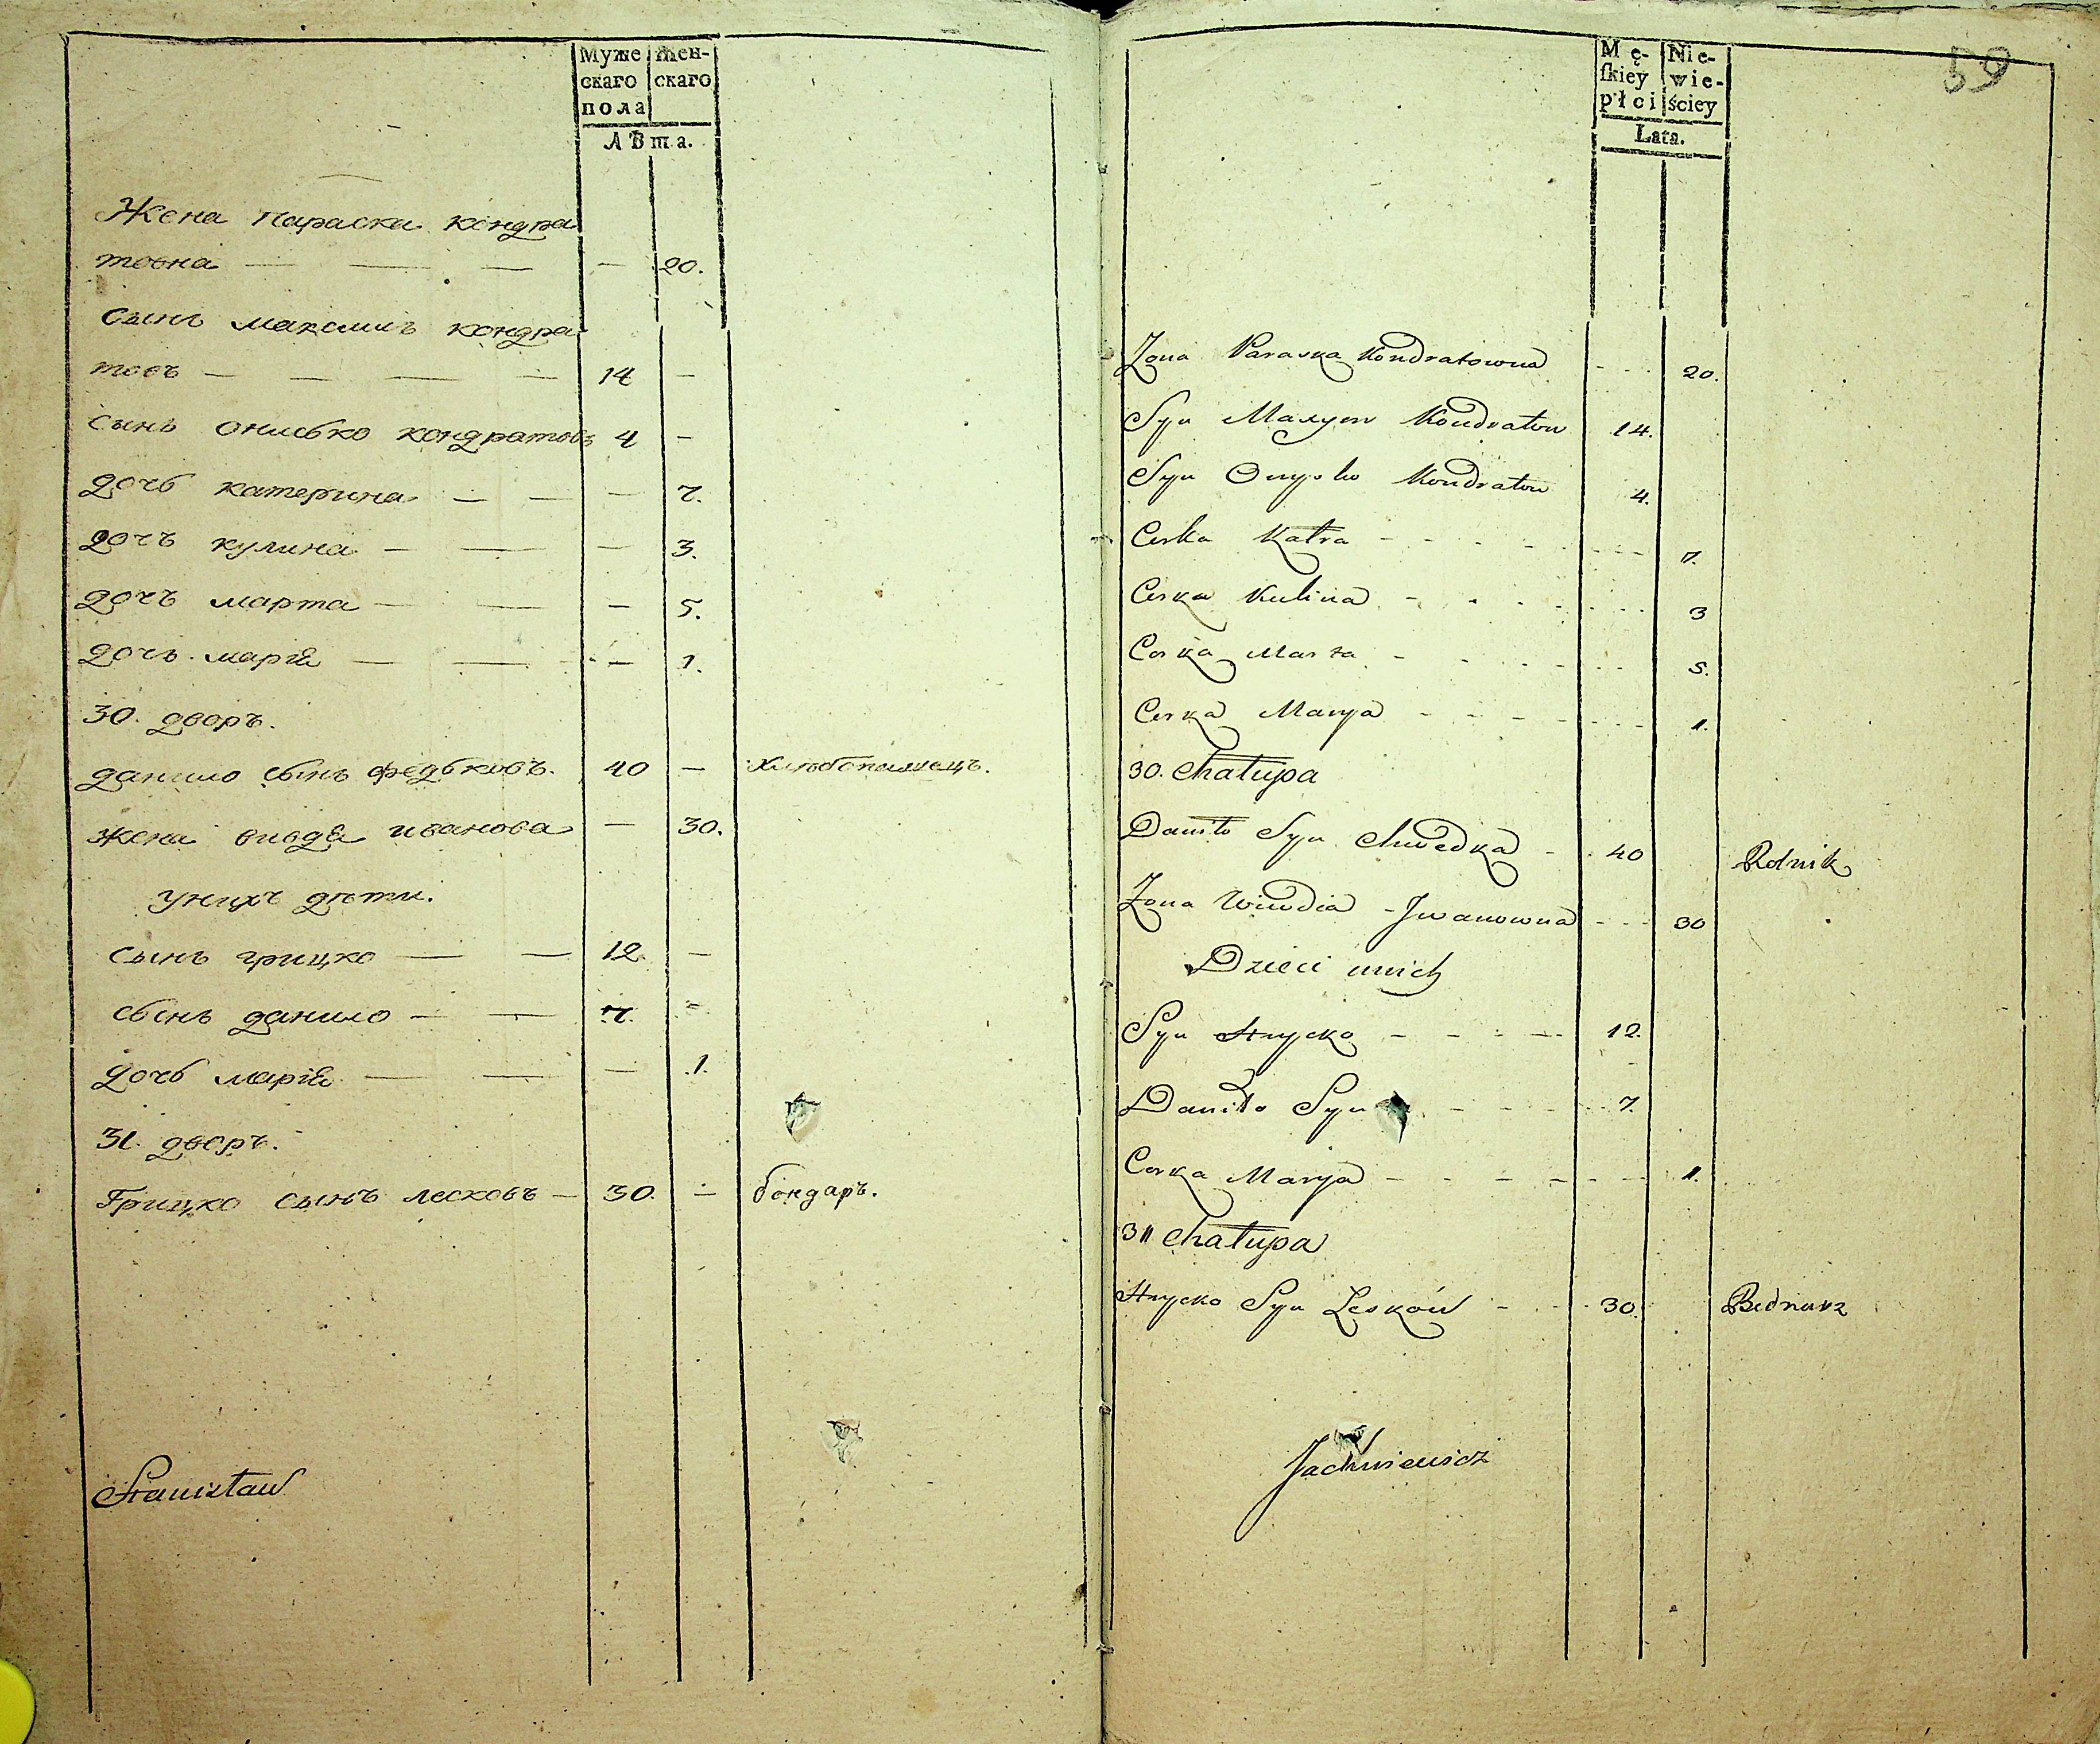 Муже Жен-
скаго скаго
пола
Лѣта.
Жена Параска Кондра
товна — — — — 20.
Сынъ максимъ кондра
товъ — — — — 14 —
Сынъ Онисько кондратовъ 4 —
Дочь катерина — — — 7.
Дочъ кулина — — — 3.
Дочъ марта — — — 5.
Дочъ марія — — — 1.
30. дворъ.
Данило сынъ федьковъ. 40 — Хлѣбопашецъ.
Жена вивдя иванова — 30.
у нихъ дѣти.
Сынъ грицко — — 12. —
сынъ данило — — 7. —
Дочь марія — — — 1.
31. дворъ.
Грицко сынъ лесковъ — 30. — бондаръ.
Stanisław
59
Mę- Nie-
ſkiey wie-
płci ściey
Lata.
Zona Paraska Kondratowna - - - 20.
Syn Maxym Kondratow 14.
Syn Onysko Kondratow 4.
Corka Katra - - - - - - - 7.
Corka Kulina - - - - - - - 3
Corka Marta - - - - - - 5.
Corka Marya - - - - - - - 1.
30. Chałupa
Daniło Syn Chwedka - - 40 Rolnik
Zona Wiwdia Jwanowna - - - 30
Dzieci unich
Syn Hrycko - - - - - 12.
Daniło Syn - - - - - 7.
Corka Marya - - - - - - - 1.
31 Chałupa
Hrycko Syn Lesków - - - 30. Bednarz
Jachniewicz